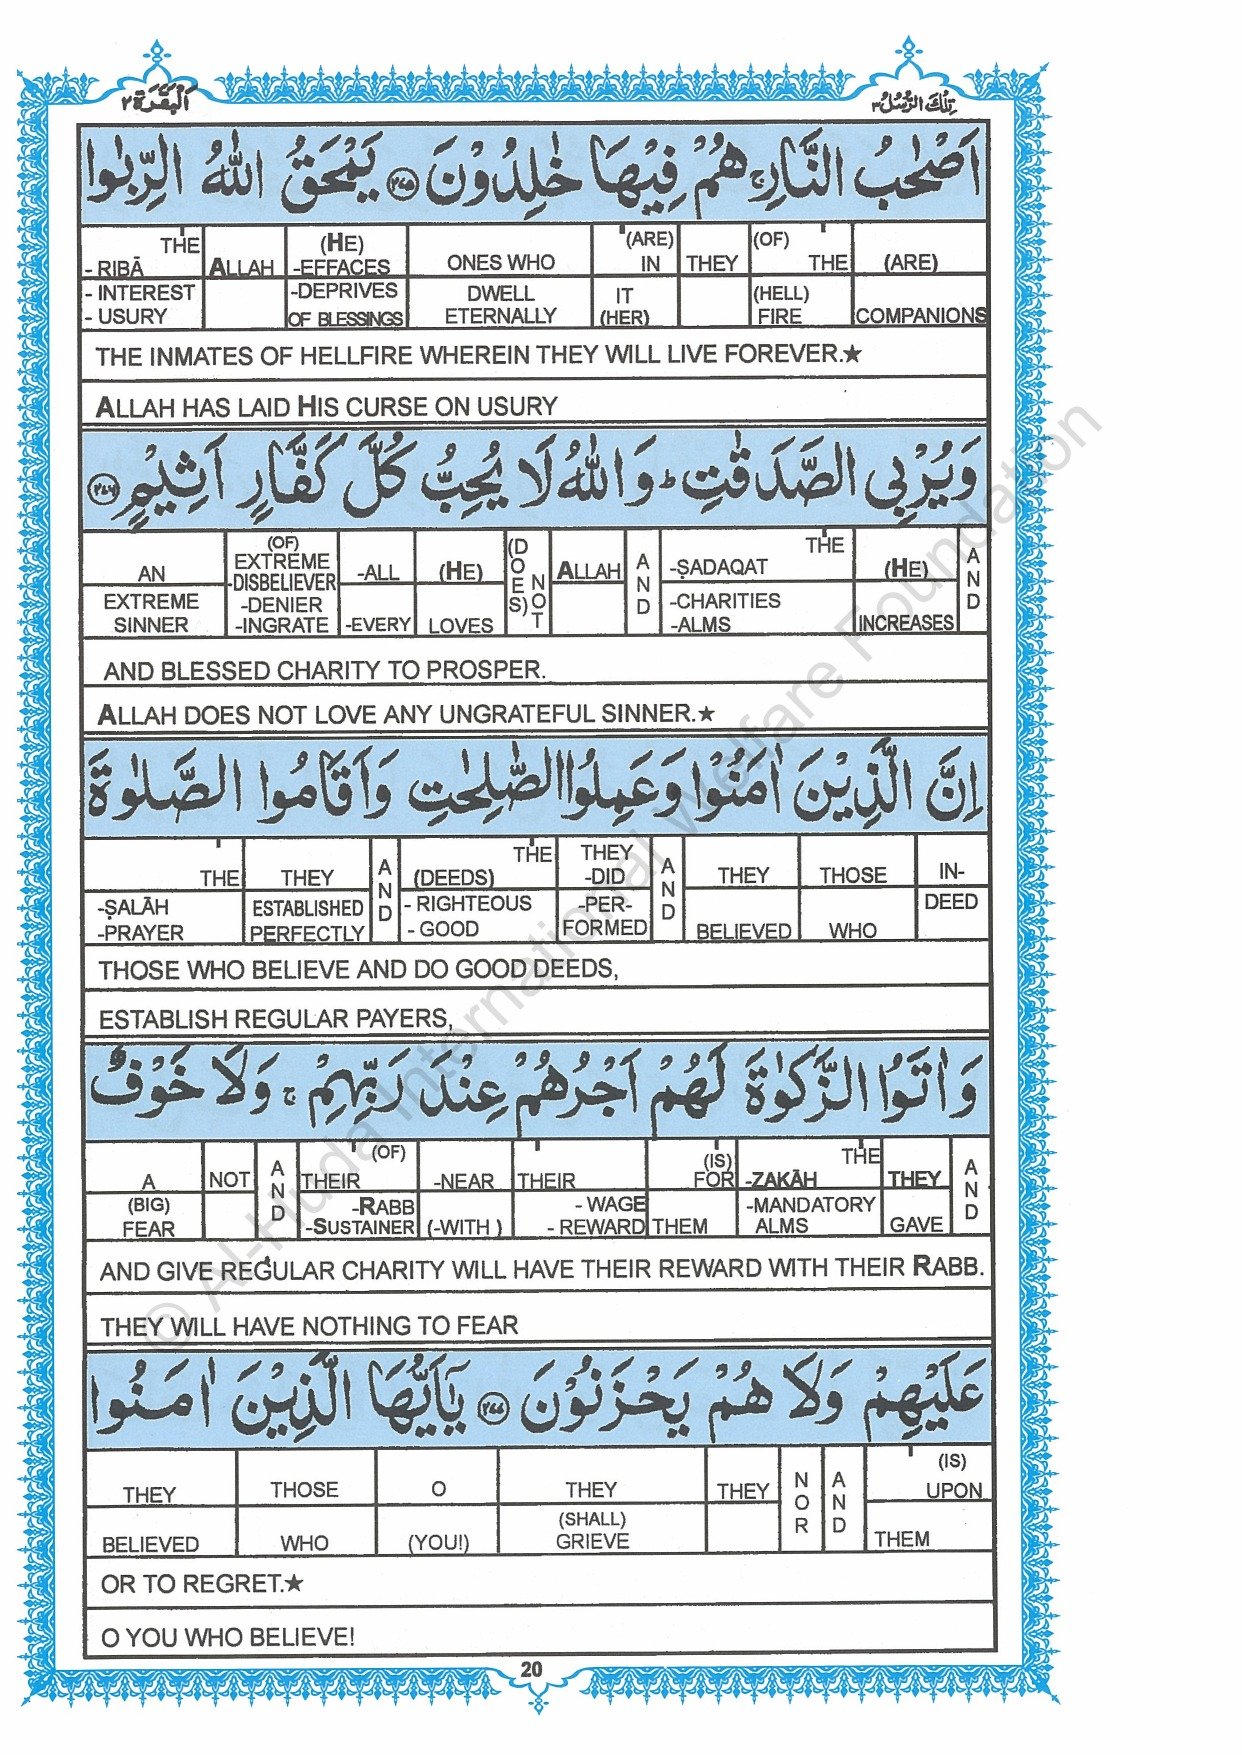 اَلْبَقَرَة ٢
تِلْكَ الرُّسُلُ ٣
اَصْحٰبُ النَّارِ ۚ هُمْ فِيْهَا خٰلِدُوْنَ ﴿٢٧٥﴾ يَمْحَقُ اللّٰهُ الرِّبٰوا
THE (HE) (ARE) (OF)
- RIBĀ ALLAH -EFFACES ONES WHO IN THEY THE (ARE)
- INTEREST -DEPRIVES DWELL IT (HELL)
- USURY OF BLESSINGS ETERNALLY (HER) FIRE COMPANIONS
THE INMATES OF HELLFIRE WHEREIN THEY WILL LIVE FOREVER.★
ALLAH HAS LAID HIS CURSE ON USURY
وَيُرْبِي الصَّدَقٰتِ ؕ وَاللّٰهُ لَا يُحِبُّ كُلَّ كَفَّارٍ اَثِيْمٍ ﴿٢٧٦﴾
(OF) THE
AN EXTREME -DISBELIEVER -ALL (HE) (DOES) NOT ALLAH AND -ṢADAQAT (HE) AND
EXTREME -DENIER -CHARITIES
SINNER -INGRATE -EVERY LOVES -ALMS INCREASES
AND BLESSED CHARITY TO PROSPER.
ALLAH DOES NOT LOVE ANY UNGRATEFUL SINNER.★
اِنَّ الَّذِيْنَ اٰمَنُوْا وَعَمِلُوا الصّٰلِحٰتِ وَاَقَامُوا الصَّلٰوةَ
THE THEY
THE THEY AND (DEEDS) -DID AND THEY THOSE IN-
-ṢALĀH ESTABLISHED - RIGHTEOUS -PER- DEED
-PRAYER PERFECTLY - GOOD FORMED BELIEVED WHO
THOSE WHO BELIEVE AND DO GOOD DEEDS,
ESTABLISH REGULAR PAYERS,
وَاٰتَوُا الزَّكٰوةَ لَهُمْ اَجْرُهُمْ عِنْدَ رَبِّهِمْ ۚ وَلَا خَوْفٌ
(OF) (IS) THE
A NOT AND THEIR -NEAR THEIR FOR -ZAKĀH THEY AND
(BIG) -RABB - WAGE -MANDATORY
FEAR -SUSTAINER (-WITH ) - REWARD THEM ALMS GAVE
AND GIVE REGULAR CHARITY WILL HAVE THEIR REWARD WITH THEIR RABB.
THEY WILL HAVE NOTHING TO FEAR
عَلَيْهِمْ وَلَا هُمْ يَحْزَنُوْنَ ﴿٢٧٧﴾ يٰٓاَيُّهَا الَّذِيْنَ اٰمَنُوا
(IS)
THEY THOSE O THEY THEY NOR AND UPON
(SHALL)
BELIEVED WHO (YOU!) GRIEVE THEM
OR TO REGRET.★
O YOU WHO BELIEVE!
20
© Al-Huda International Welfare Foundation